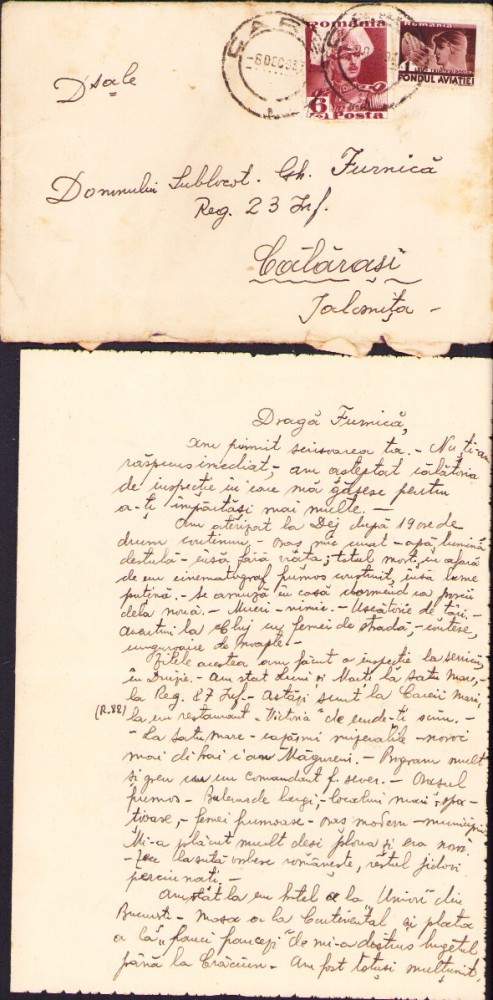 CAR
6 DEC 936
România
6
lei Posta
România
1
FONDUL AVIAȚIEI
D'sale
Domnului Sublocot. Gh. Furnică
Reg. 23 Inf.
Călărași
Ialomița -
Dragă Furnică,
Am primit scrisoarea ta. - Nu ți-am
răspuns imediat, - am așteptat călătoria
de inspecție în care mă găsesc pentru
a-ți împărtăși mai multe. -
Am aterizat la Dej după 19 ore de
drum continuu, - oraș mic curat - apă, lumină
destulă - însă fără viață; totul mort, în afară
de un cinematograf frumos construit, însă lume
puțină. - Se
dela nouă. - - nimic. -
la Cluj cu femei de stradă, -
unguroaice de
Zilele acestea am făcut o inspecție la
în Divizie. - Am stat Luni și Marți la Satu Mare,
la Reg. 87 Inf. - Astăzi sunt la Careii Mari,
(R. 88) la un restaurant "Victoria" de unde-ți scriu. -
- La Satu mare - cazărmi mizerabile - noroi
mai ca în Măgureni. - Program mult
și greu cu un comandant f. sever. - Orașul
frumos - Bulevarde largi, - localuri mari spa-
țioase, - femei frumoase - oraș modern - municipiu
Mi-a plăcut mult deși ploua și era noroi
- Zece la sută vorbesc românește, restul jidovi
perciunați. -
Am stat la un hotel ca la "Union" din
București - Masa ca la Continental și plata
a la "franci francezi" de mi-a distrus bugetul
până la Crăciun - Am fost totuși mulțumit